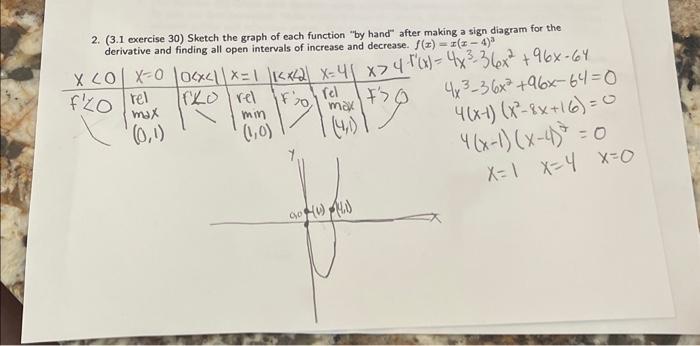 2. (3.1 exercise 30) Sketch the graph of each function "by hand" after making a sign diagram for the
derivative and finding all open intervals of increase and decrease. f(x) = x(x − 4)³
f'(x) = 4x³-36x² + 96x-64
x<0 | x=0 | 0<x<1 | x=1 | 1<x<4 | x=4 | x>4
f'<0 | rel max (0,1) | f'<0 | rel min (1,0) | f'>0 | rel max (4,1) | f'>0
4x³-36x²+96x-64=0
4(x-1)(x²-8x+16)=0
4(x-1)(x-4)²=0
x=1 x=4 x=0
y
0,0 (1,0) (4,1)
x